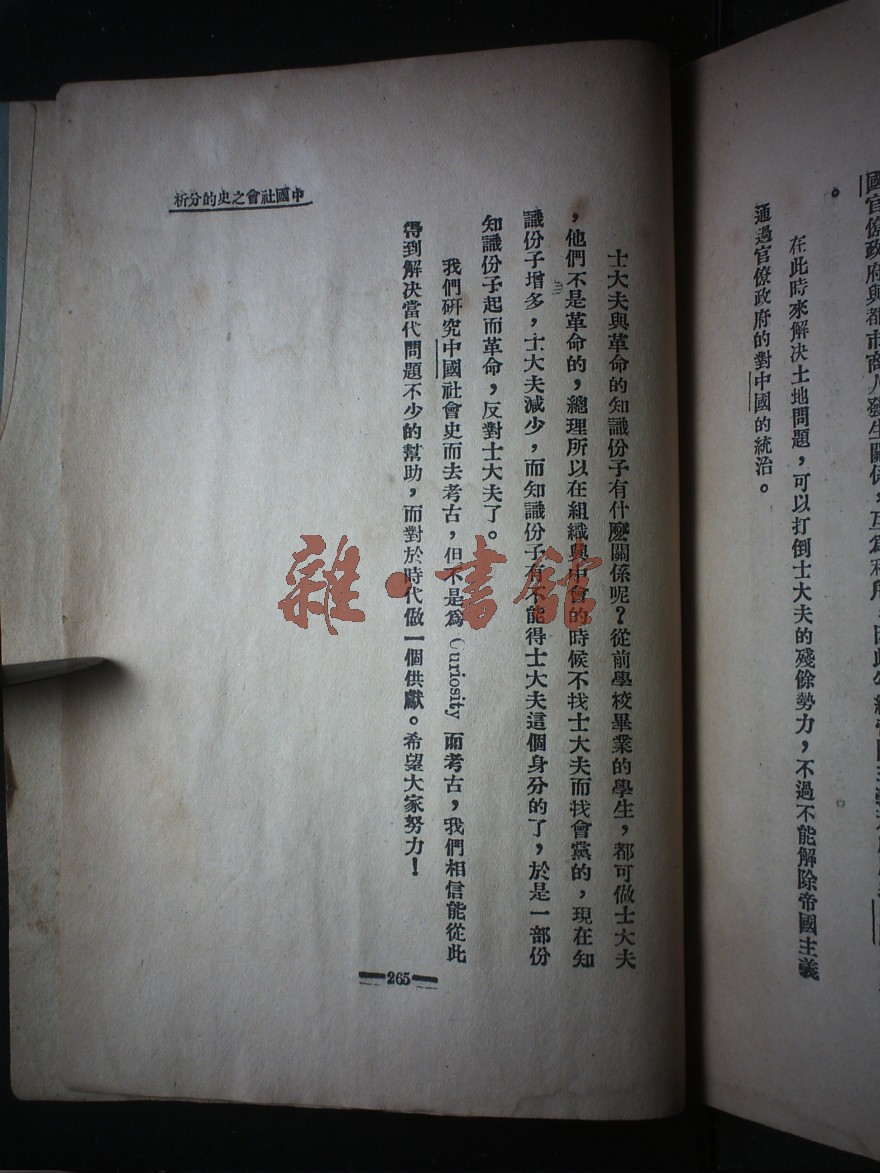 國官僚政府與都市商人發生關係，互爲利用
。
在此時來解決土地問題，可以打倒士大夫的殘餘勢力，不過不能解除帝國主義
通過官僚政府的對中國的統治。
士大夫與革命的知識份子有什麼關係呢？從前學校畢業的學生，都可做士大夫
，他們不是革命的，總理所以在組織興中會的時候不找士大夫而找會黨的，現在知
識份子增多，士大夫減少，而知識份子有不能得士大夫這個身分的了，於是一部份
知識份子起而革命，反對士大夫了。
我們研究中國社會史而去考古，但不是爲 Curiosity 而考古，我們相信能從此
得到解決當代問題不少的幫助，而對於時代做一個供獻。希望大家努力！
中國社會之史的分析
265
雜·書館